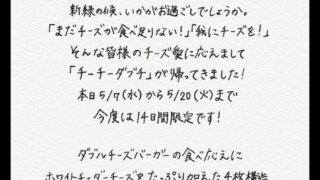 新緑の候、いかがお過ごしでしょうか。
「まだチーズが食べ足りない！」「我にチーズを！」
そんな皆様のチーズ愛に応えまして
「チーチーダブチ」が帰ってきました！
本日5/7(水)から5/20(火)まで
今度は14日間限定です！
ダブルチーズバーガーの食べ応えに
ホワイトチェダーチーズをたっぷり加えた4枚構造